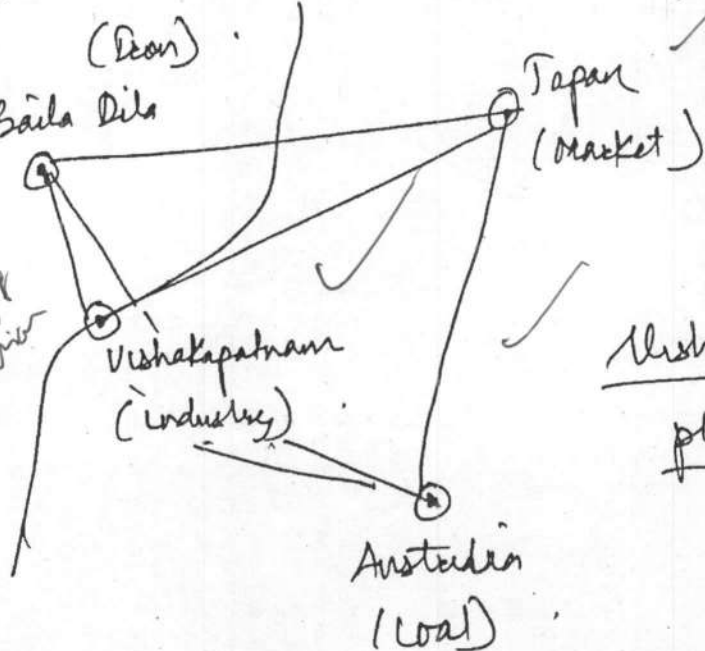 (Iron)
Baila Dila
Japan
(Market)
Vishakapatnam
(industry)
Vish
pl
Australia
(coal)